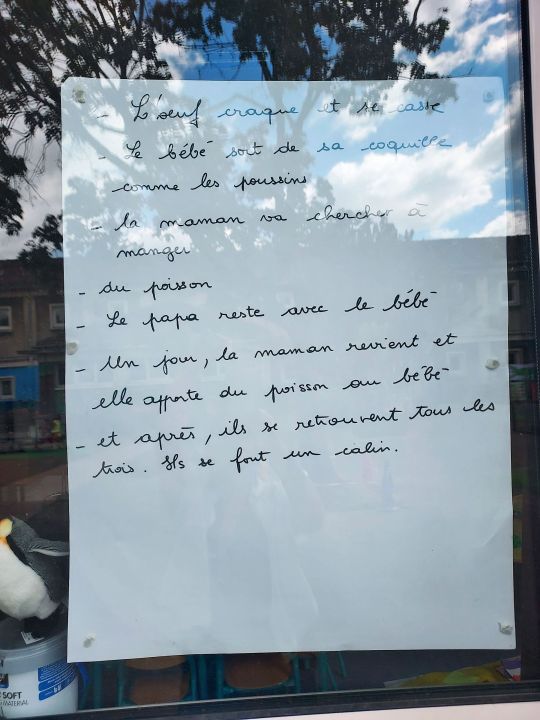 - L'œuf craque et se casse
- Le bébé sort de sa coquille
comme les poussins
- la maman va chercher à
manger
- du poisson
- Le papa reste avec le bébé
- Un jour, la maman revient et
elle apporte du poisson au bébé
- et après, ils se retrouvent tous les
trois. Ils se font un calin.
SOFT
MATERIAL